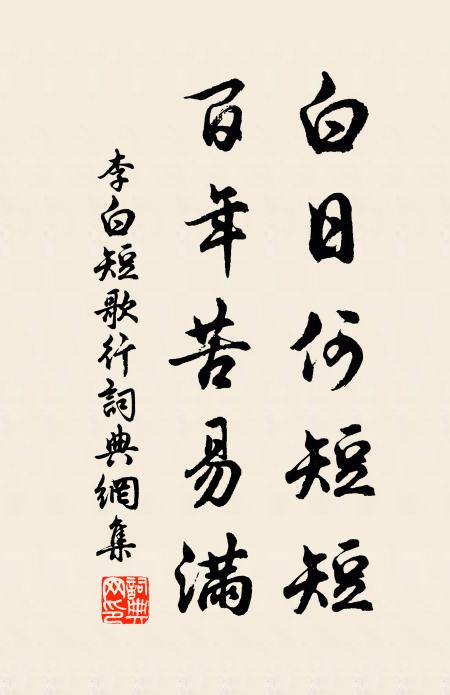 白日何短短
百年苦易滿
李白短歌行詞典網集
詞典網印